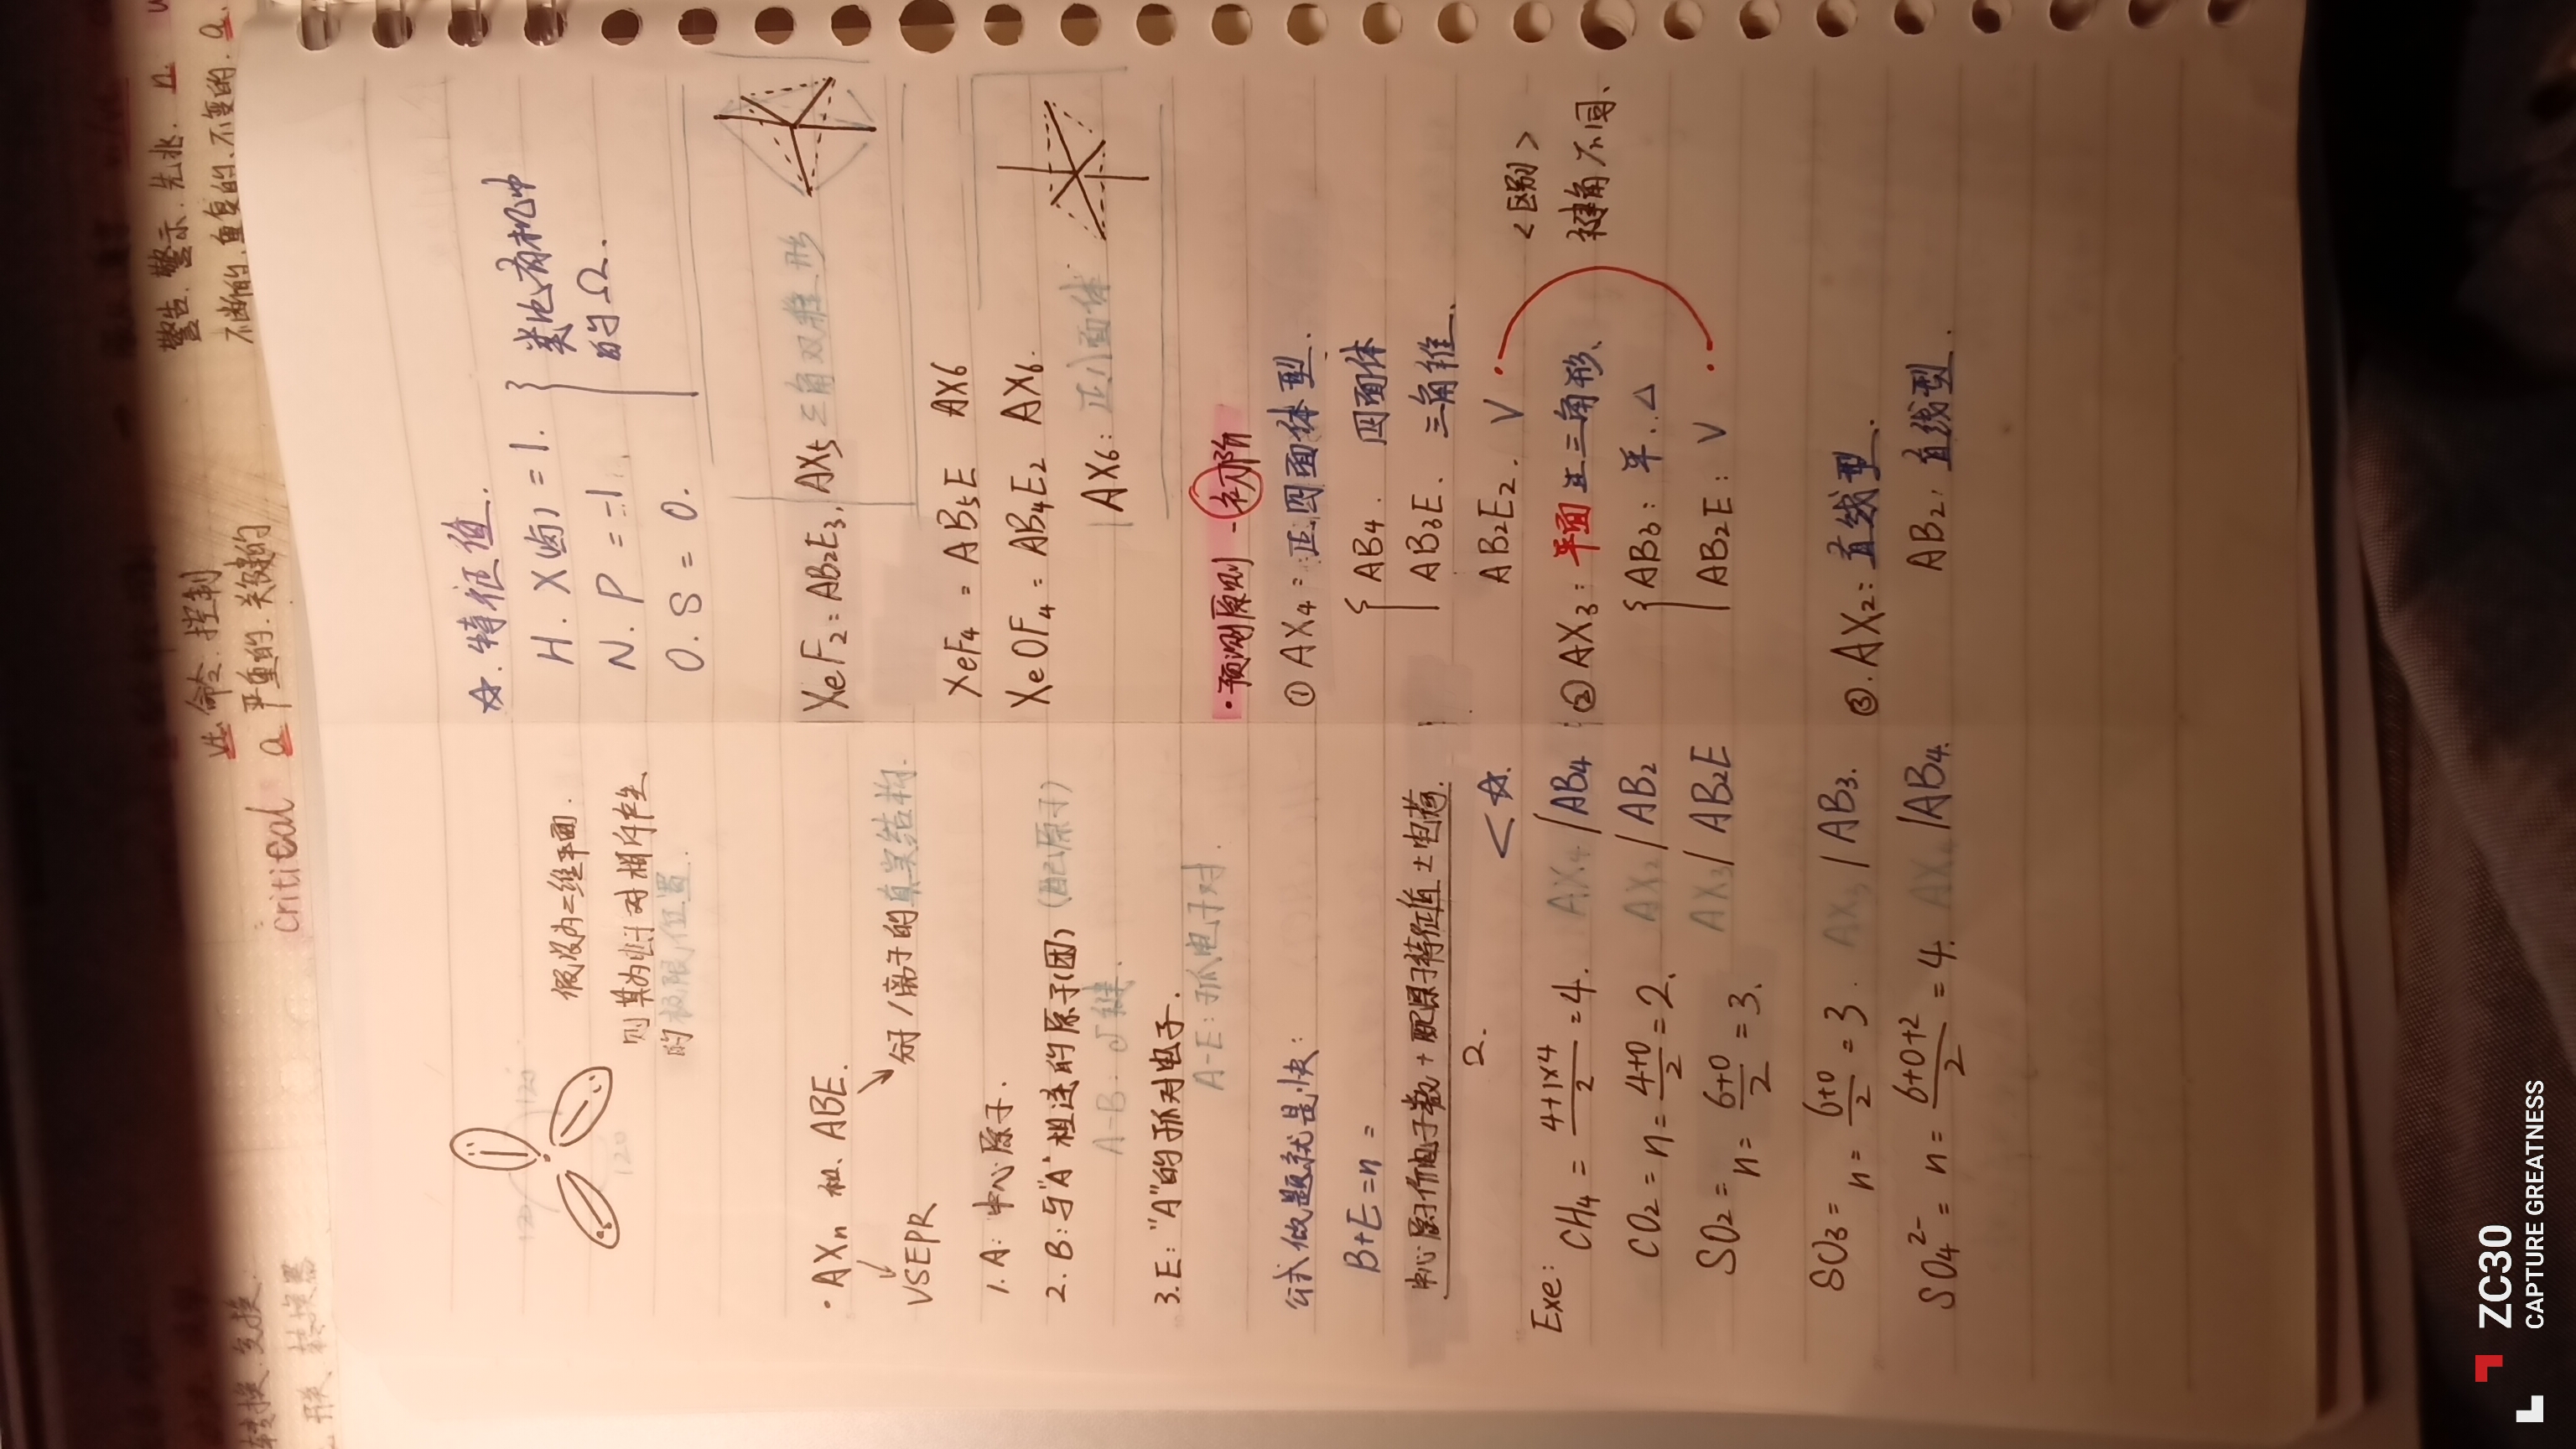 critical a 严重的.关键的
vt 命令.控制
警告.警示.先兆.n.
不断的.重复的.不变的.a.
120° 120°
120
假设为二维平面.
则其为电子对相斥产生
的极限位置.
·AXn 和 ABE.
VSEPR
分子/离子的真实结构.
1.A:中心原子.
2.B:与"A"相连的原子(团) (配原子)
A-B:σ键.
3.E:"A"的孤对电子.
A-E:孤电子对.
公式做题就是快:
B+E=n=
中心原子价电子数+配原子特征值±电荷.
2.
<☆.
Exe: CH4 = 4+1×4/2 =4. AX4 / AB4
CO2 = n= 4+0/2 =2. AX2 / AB2
SO2 = n= 6+0/2 =3. AX3 / AB2E
SO3 = n= 6+0/2 =3. AX3 / AB3.
SO4²⁻ = n= 6+0+2/2 =4. AX4 / AB4.
☆.特征值.
H.X(卤)=1.
N.P=-1.
O.S=0.
类比有机中
的Ω.
XeF2:AB2E3, AX5 三角双锥形
XeF4 = AB5E AX6
XeOF4 = AB4E2 AX6.
AX6:正八面体
·预测原则-初阶
①AX4=正四面体型.
AB4. 四面体
AB3E. 三角锥.
AB2E2. V
②AX3:平面正三角形.
AB3:平.△
AB2E:V
<区别>
键角不同.
③.AX2:直线型.
AB2.直线型.
ZC30
CAPTURE GREATNESS